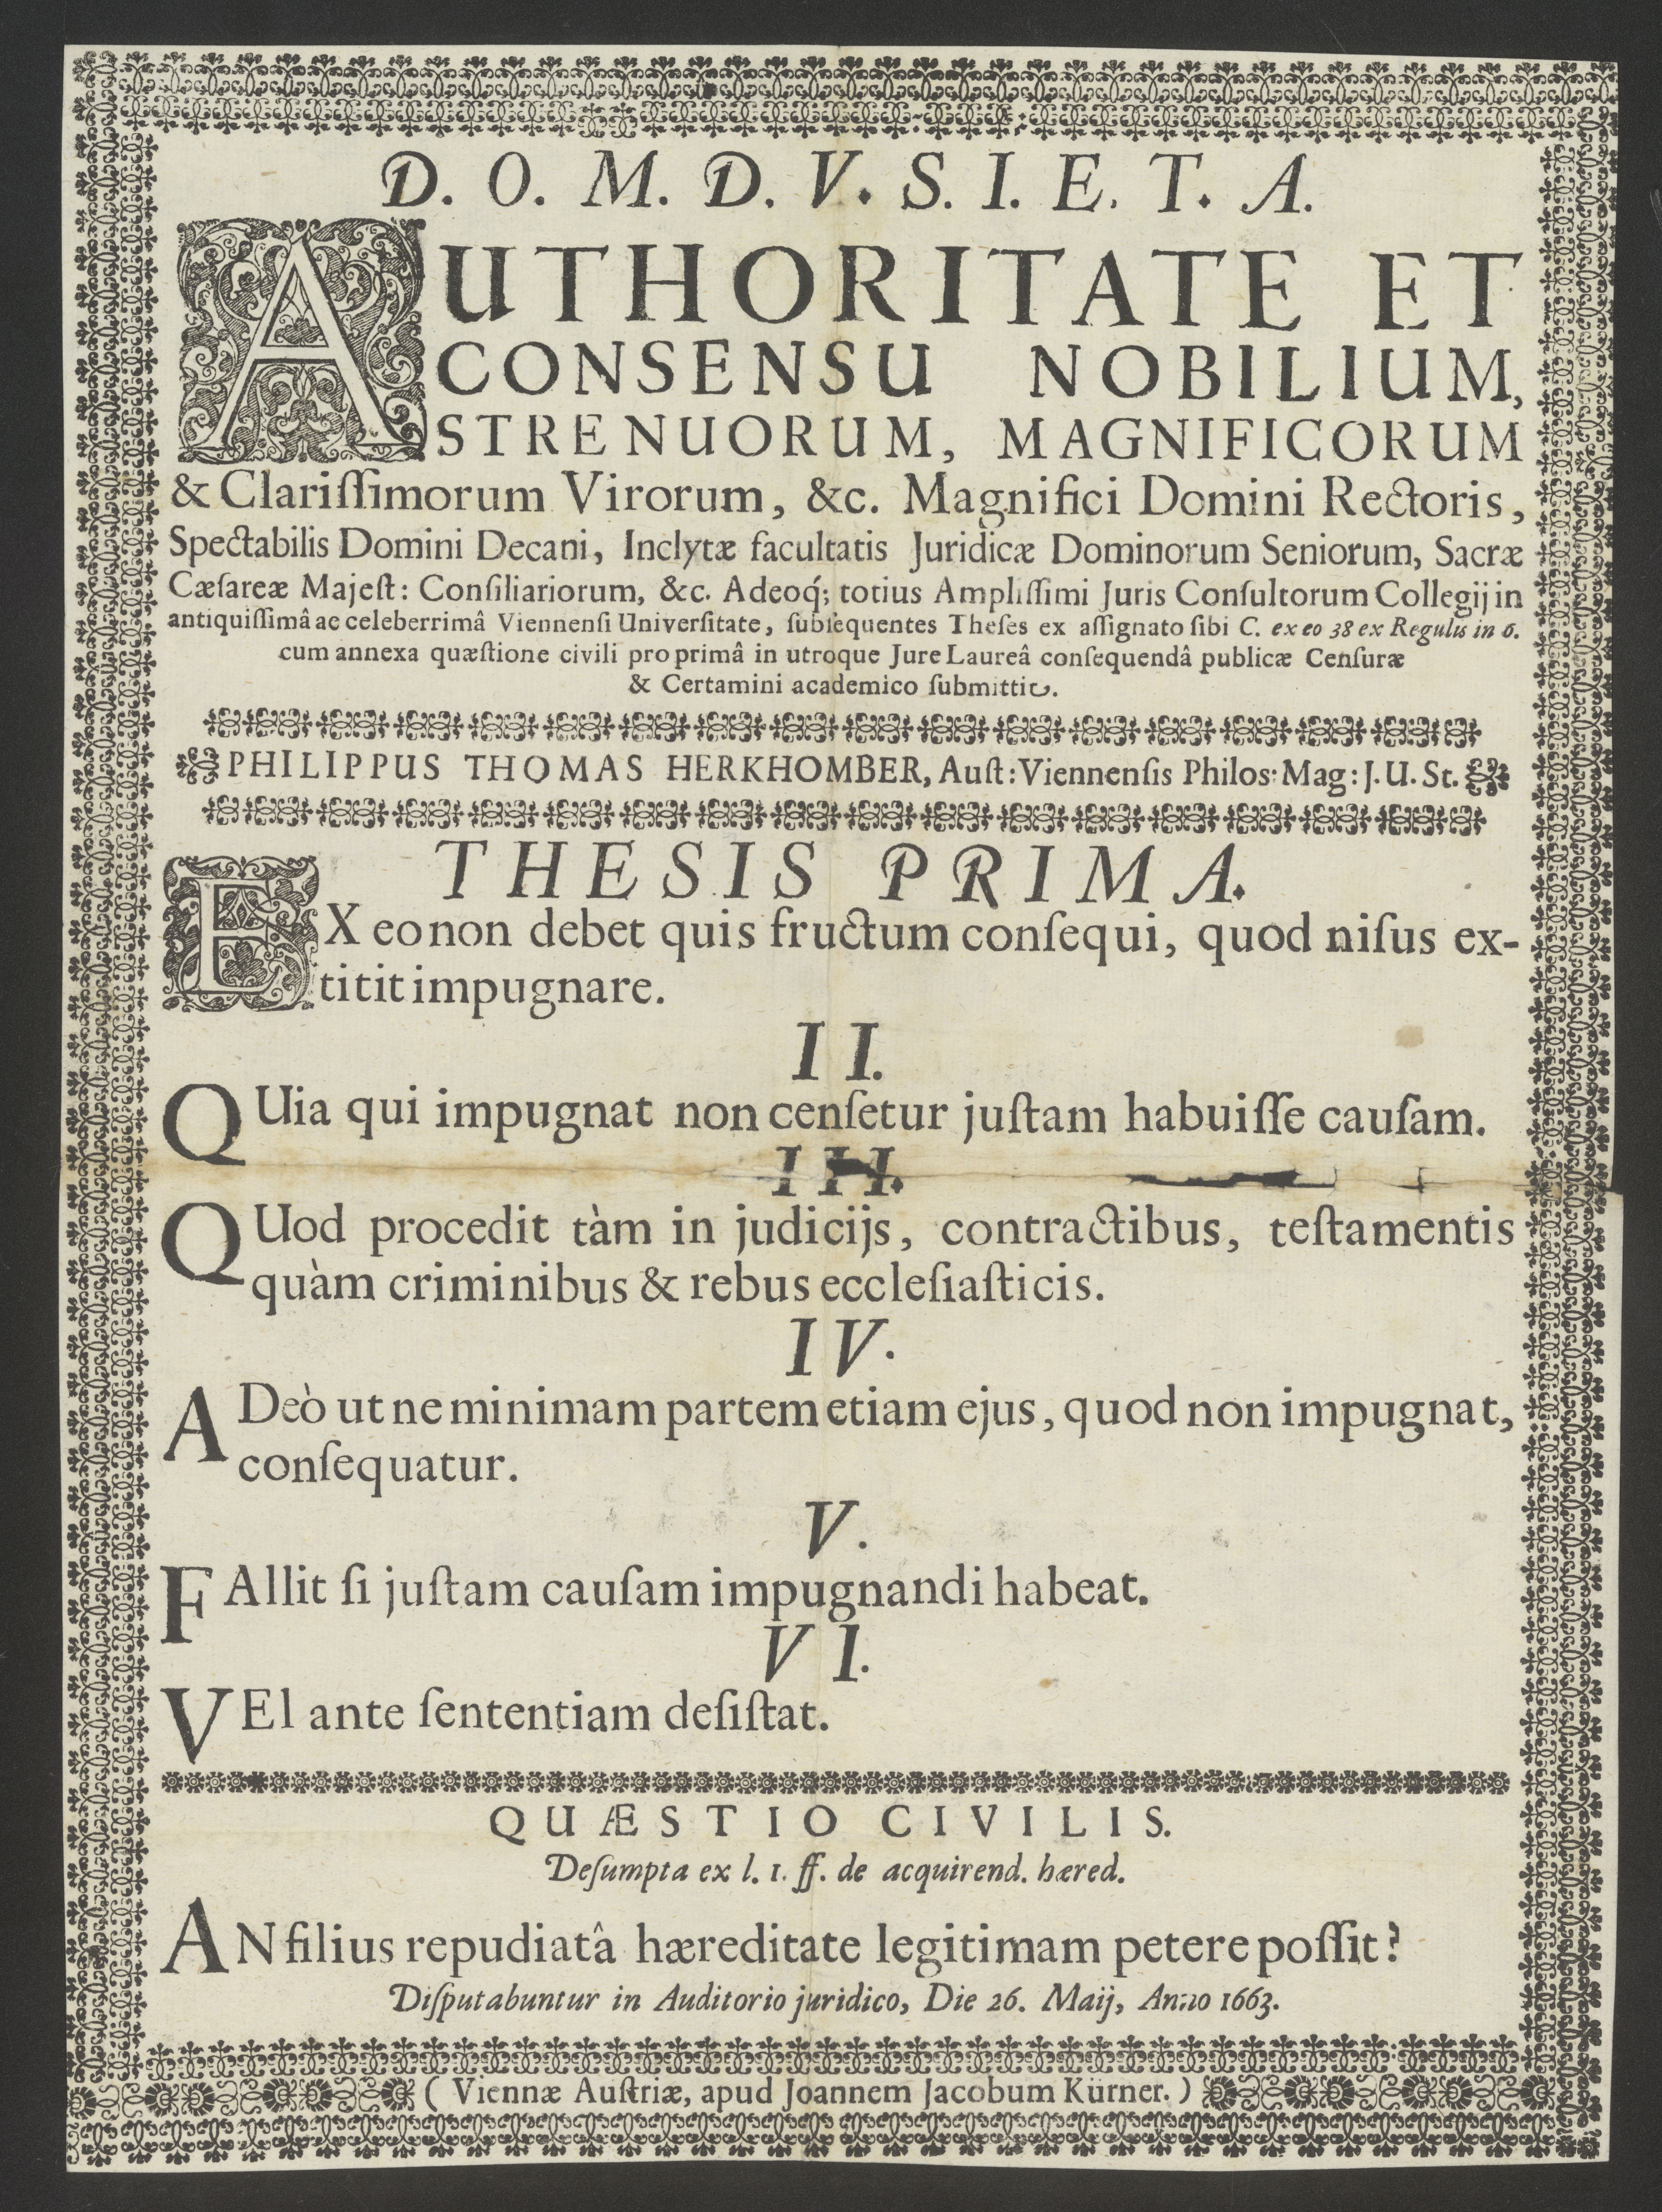 D. O. M. D. V. S. I. E. T. A.
AUTHORITATE ET
CONSENSU NOBILIUM,
STRENUORUM, MAGNIFICORUM
& Clariſſimorum Virorum, &c. Magnifici Domini Rectoris,
Spectabilis Domini Decani, Inclytæ facultatis Juridicæ Dominorum Seniorum, Sacræ
Cæſareæ Majeſt: Conſiliariorum, &c. Adeoq́; totius Ampliſſimi Juris Conſultorum Collegij in
antiquiſſimâ ac celeberrimâ Viennenſi Univerſitate, ſubſequentes Theſes ex aſſignato ſibi C. ex eo 38 ex Regulis in 6.
cum annexa quæſtione civili pro primâ in utroque Jure Laureâ conſequendâ publicæ Cenſuræ
& Certamini academico ſubmittit.
PHILIPPUS THOMAS HERKHOMBER, Auſt: Viennenſis Philos: Mag: J. U. St.
THESIS PRIMA.
EX eo non debet quis fructum conſequi, quod niſus ex-
titit impugnare.
II.
QUia qui impugnat non cenſetur juſtam habuiſſe cauſam.
III.
QUod procedit tàm in judicijs, contractibus, teſtamentis
quàm criminibus & rebus eccleſiaſticis.
IV.
ADeò ut ne minimam partem etiam ejus, quod non impugnat,
conſequatur.
V.
FAllit ſi juſtam cauſam impugnandi habeat.
VI.
VEl ante ſententiam deſiſtat.
QUÆSTIO CIVILIS.
Deſumpta ex l. 1. ff. de acquirend. hæred.
AN filius repudiatâ hæreditate legitimam petere poſſit?
Diſputabuntur in Auditorio juridico, Die 26. Maij, Anno 1663.
( Viennæ Auſtriæ, apud Joannem Jacobum Kürner. )